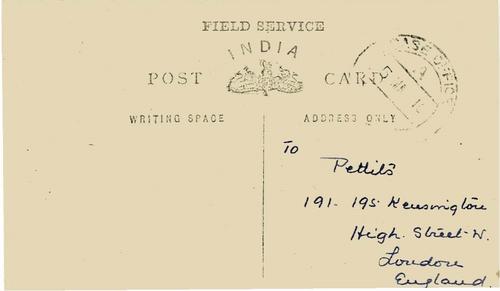 FIELD SERVICE
INDIA
POST CARD
WRITING SPACE
ADDRESS ONLY
BASE OFFICE
A
To
Pettits
191-195 Kensington
High Street W.
London
England.